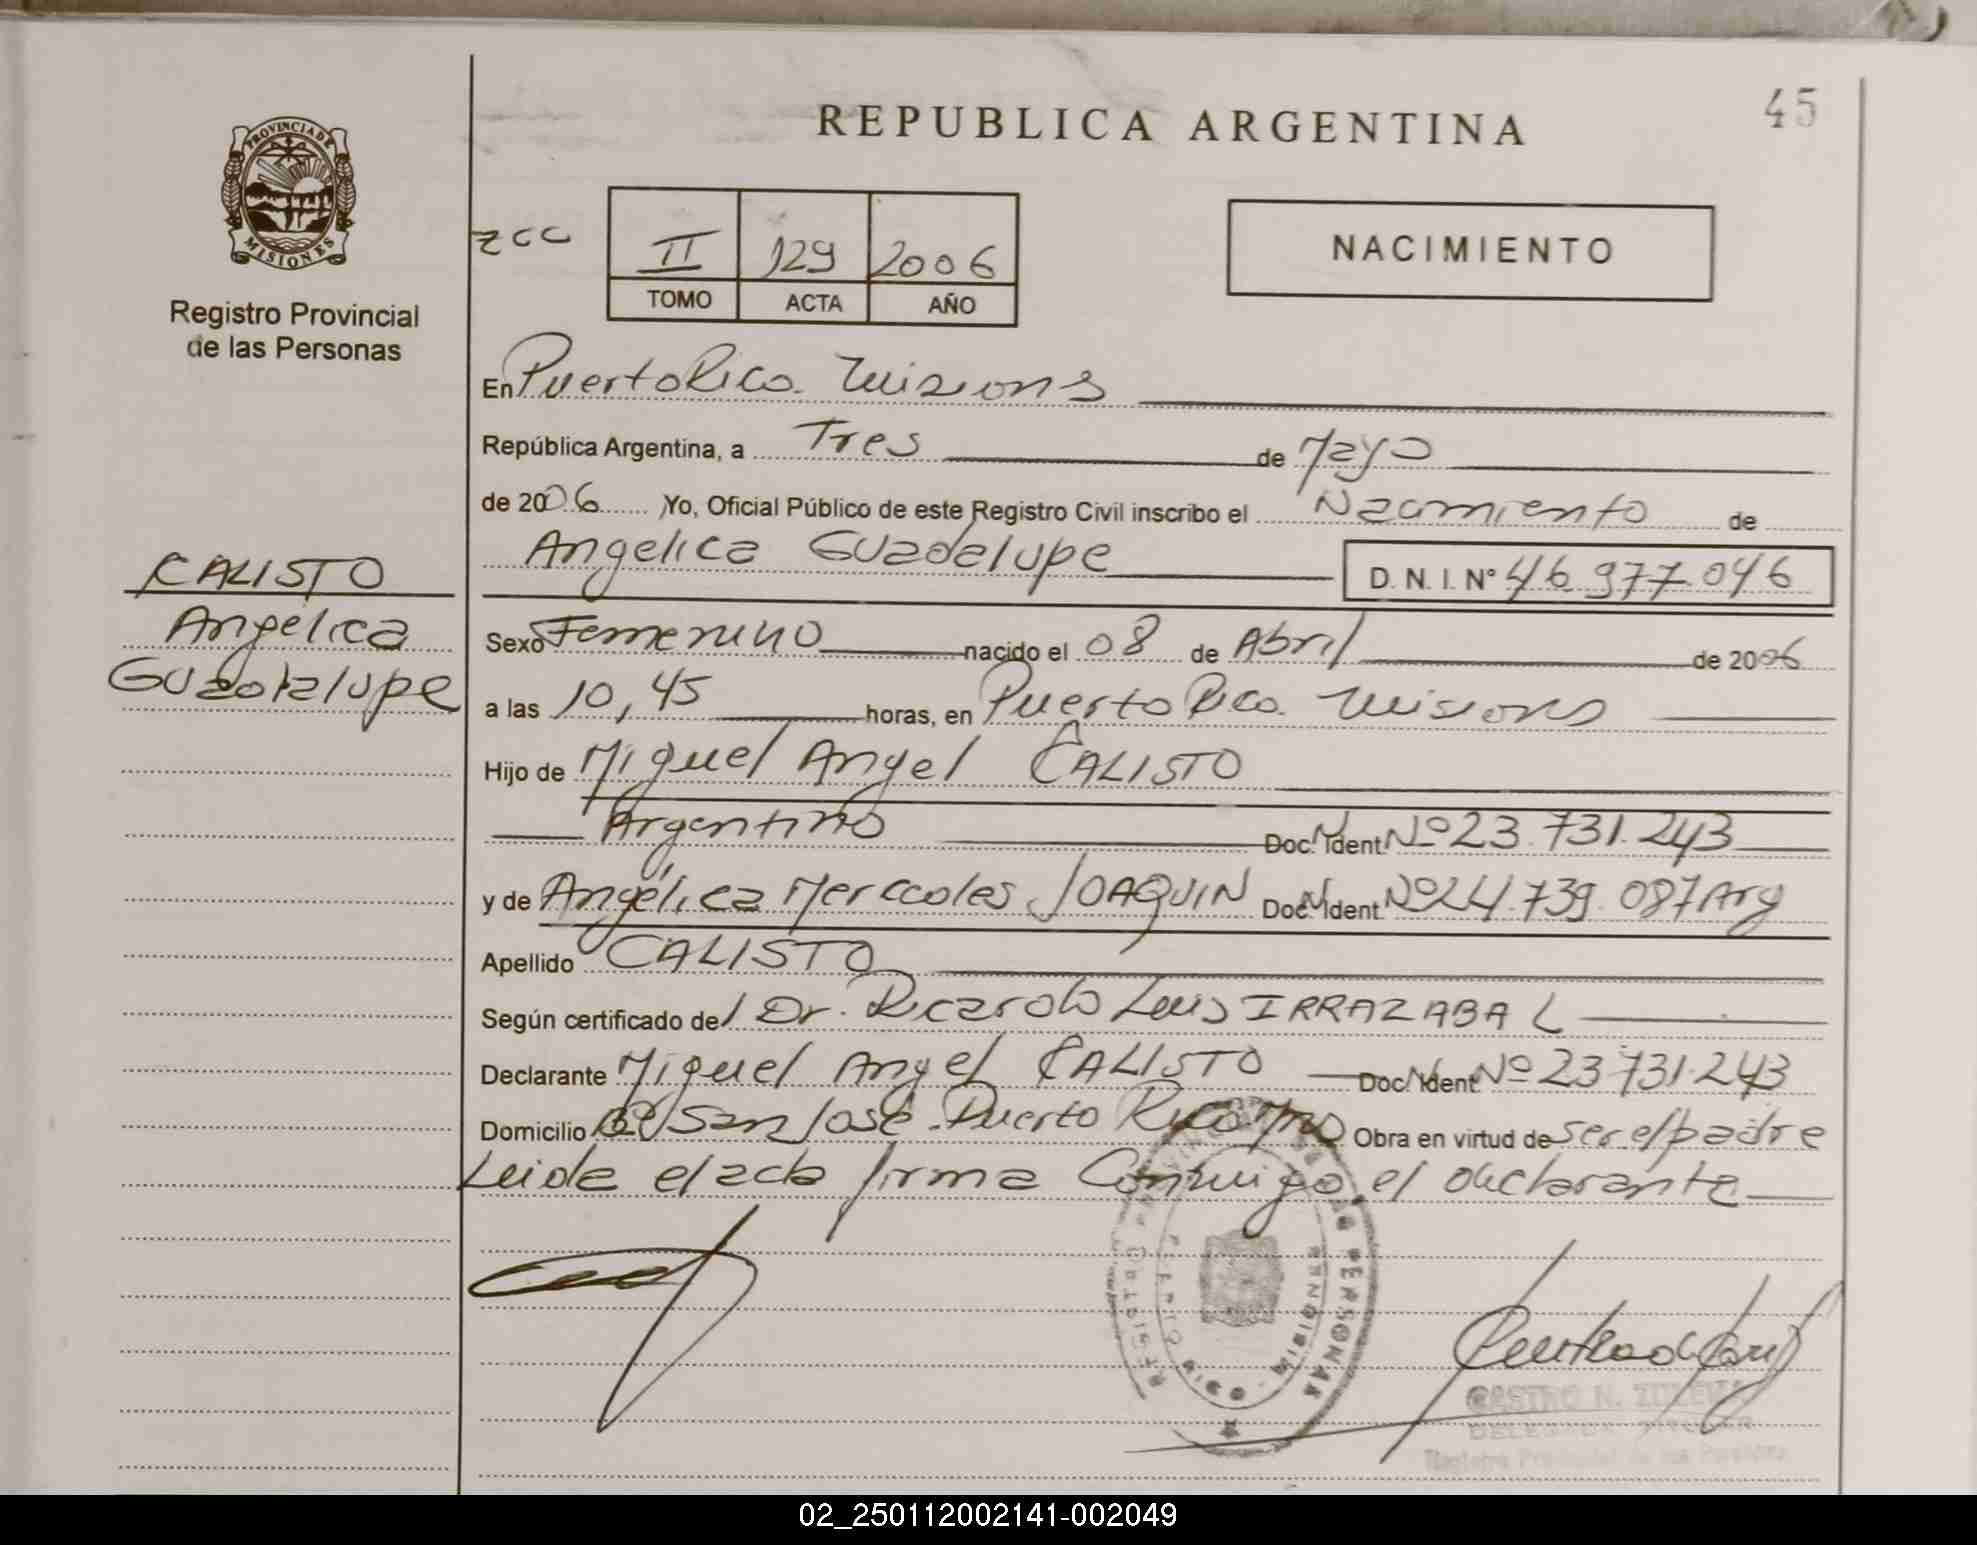 45
REPUBLICA ARGENTINA
PROVINCIA DE
MISIONES
Registro Provincial
de las Personas
zcc
II 129 2006
TOMO ACTA AÑO
NACIMIENTO
En Puerto Rico. Misions
República Argentina, a Tres de Mayo
de 2006 Yo, Oficial Público de este Registro Civil inscribo el Nacimiento de
Angelica Guadalupe D. N. I. N° 46.977.046
CALISTO
Angelica
Guadalupe
Sexo Femenino nacido el 08 de Abril de 2006
a las 10,45 horas, en Puerto Rico. Misions
Hijo de Miguel Angel CALISTO
Argentino Doc. Ident. Nº 23.731.243
y de Angélica Mercedes JOAQUIN Doc. Ident. Nº 24.739.087 Arg
Apellido CALISTO
Según certificado del Dr. Ricardo Luis IRRAZABAL
Declarante Miguel Angel CALISTO Doc. Ident. Nº 23.731.243
Domicilio Bº San José. Puerto Rico Mns Obra en virtud de ser el padre
Leida el acta firma Conmigo el declarante
REGISTRO PROVINCIAL DE LAS PERSONAS
PUERTO RICO
CASTRO N. ZULEMA
DELEGADA TITULAR
Registro Provincial de las Personas
02_250112002141-002049